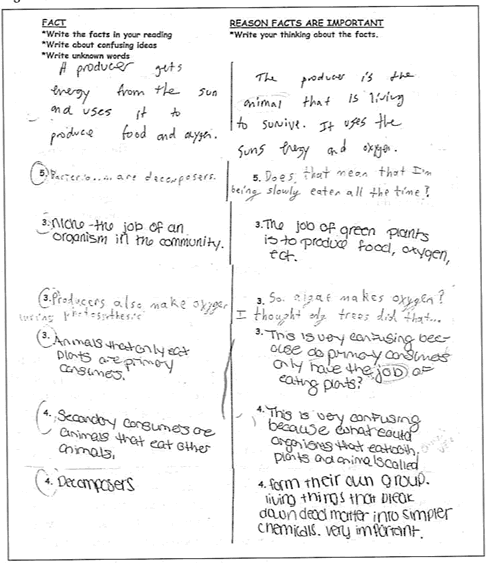 FACT
*Write the facts in your reading
*Write about confusing ideas
*Write unknown words
A producer gets
energy from the sun
and uses it to
produce food and oxygen.
5. are decomposers.
3. Niche-the job of an
organism in the community.
3. Producers also make oxygen
using photosynthesis
3. Animals that only eat
plants are primary
consumers.
4. Secondary consumers are
animals that eat other
animals.
4. Decomposers
REASON FACTS ARE IMPORTANT
*Write your thinking about the facts.
The producer is the
animal that is living
to survive. It uses the
suns energy and oxygen.
5. Does that mean that I'm
being slowly eaten all the time?
3. The job of green plants
is to produce food, oxygen,
ect.
3. So algae makes oxygen?
I thought only trees did that...
3. This is very confusing bec-
ause do primary consumers
only have the job of
eating plants?
4. This is very confusing
because what could
organisms that eat both,
plants and animals called
4. form their own group.
living things that break
down dead matter into simpler
chemicals. very important.